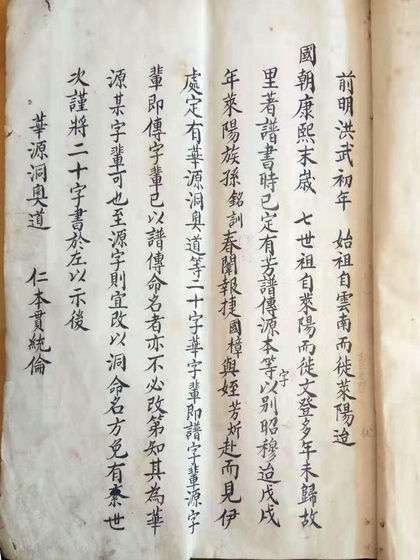 前明洪武初年　始祖自雲南而徙萊陽迨
國朝康熙末歲　七世祖自萊陽而徙文登多年未歸故
里著譜書時已定有芳譜傳源本等字以別昭穆迨戊戌
年萊陽族孫銘訓春闈報捷國樟與姪芳炘赴而見伊
處定有華源洞奧道等二十字華字輩即譜字輩源字
輩即傳字輩已以譜傳命名者亦不必改第知其為華
源某字輩可也至源字則宜改以洞命名方免有紊世
次謹將二十字書於左以示後
華源洞奧道　仁本貫統倫